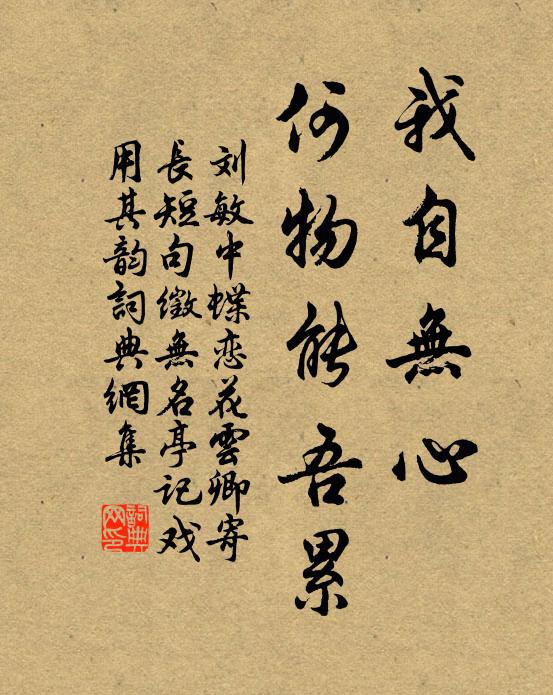 我自無心
何物能吾累
刘敏中蝶恋花雲卿寄
長短句徵無名亭记戏
用其韵詞典網集
詞典网印